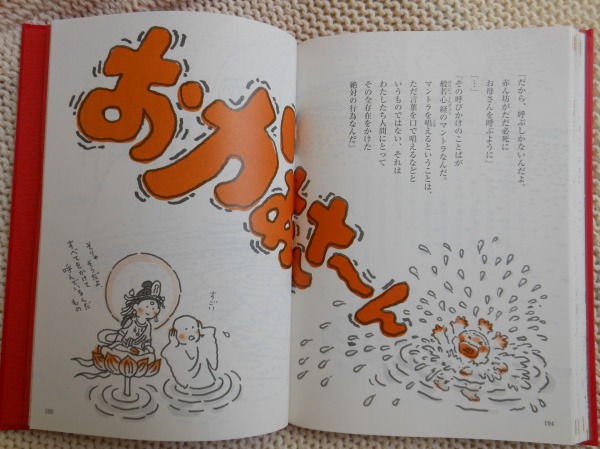 「だから、呼ぶしかないんだよ。
赤ん坊がただ必死に
お母さんを呼ぶように」
「！」
「その呼びかけのことばが
般若心経のマントラなんだ。
マントラを唱えるということは、
ただ言葉を口で唱えるなどと
いうものではない、それは
わたしたち人間にとって
その全存在をかけた
絶対の行為なんだ」
194
おかあさーん
すごい
すべてをかけて
195